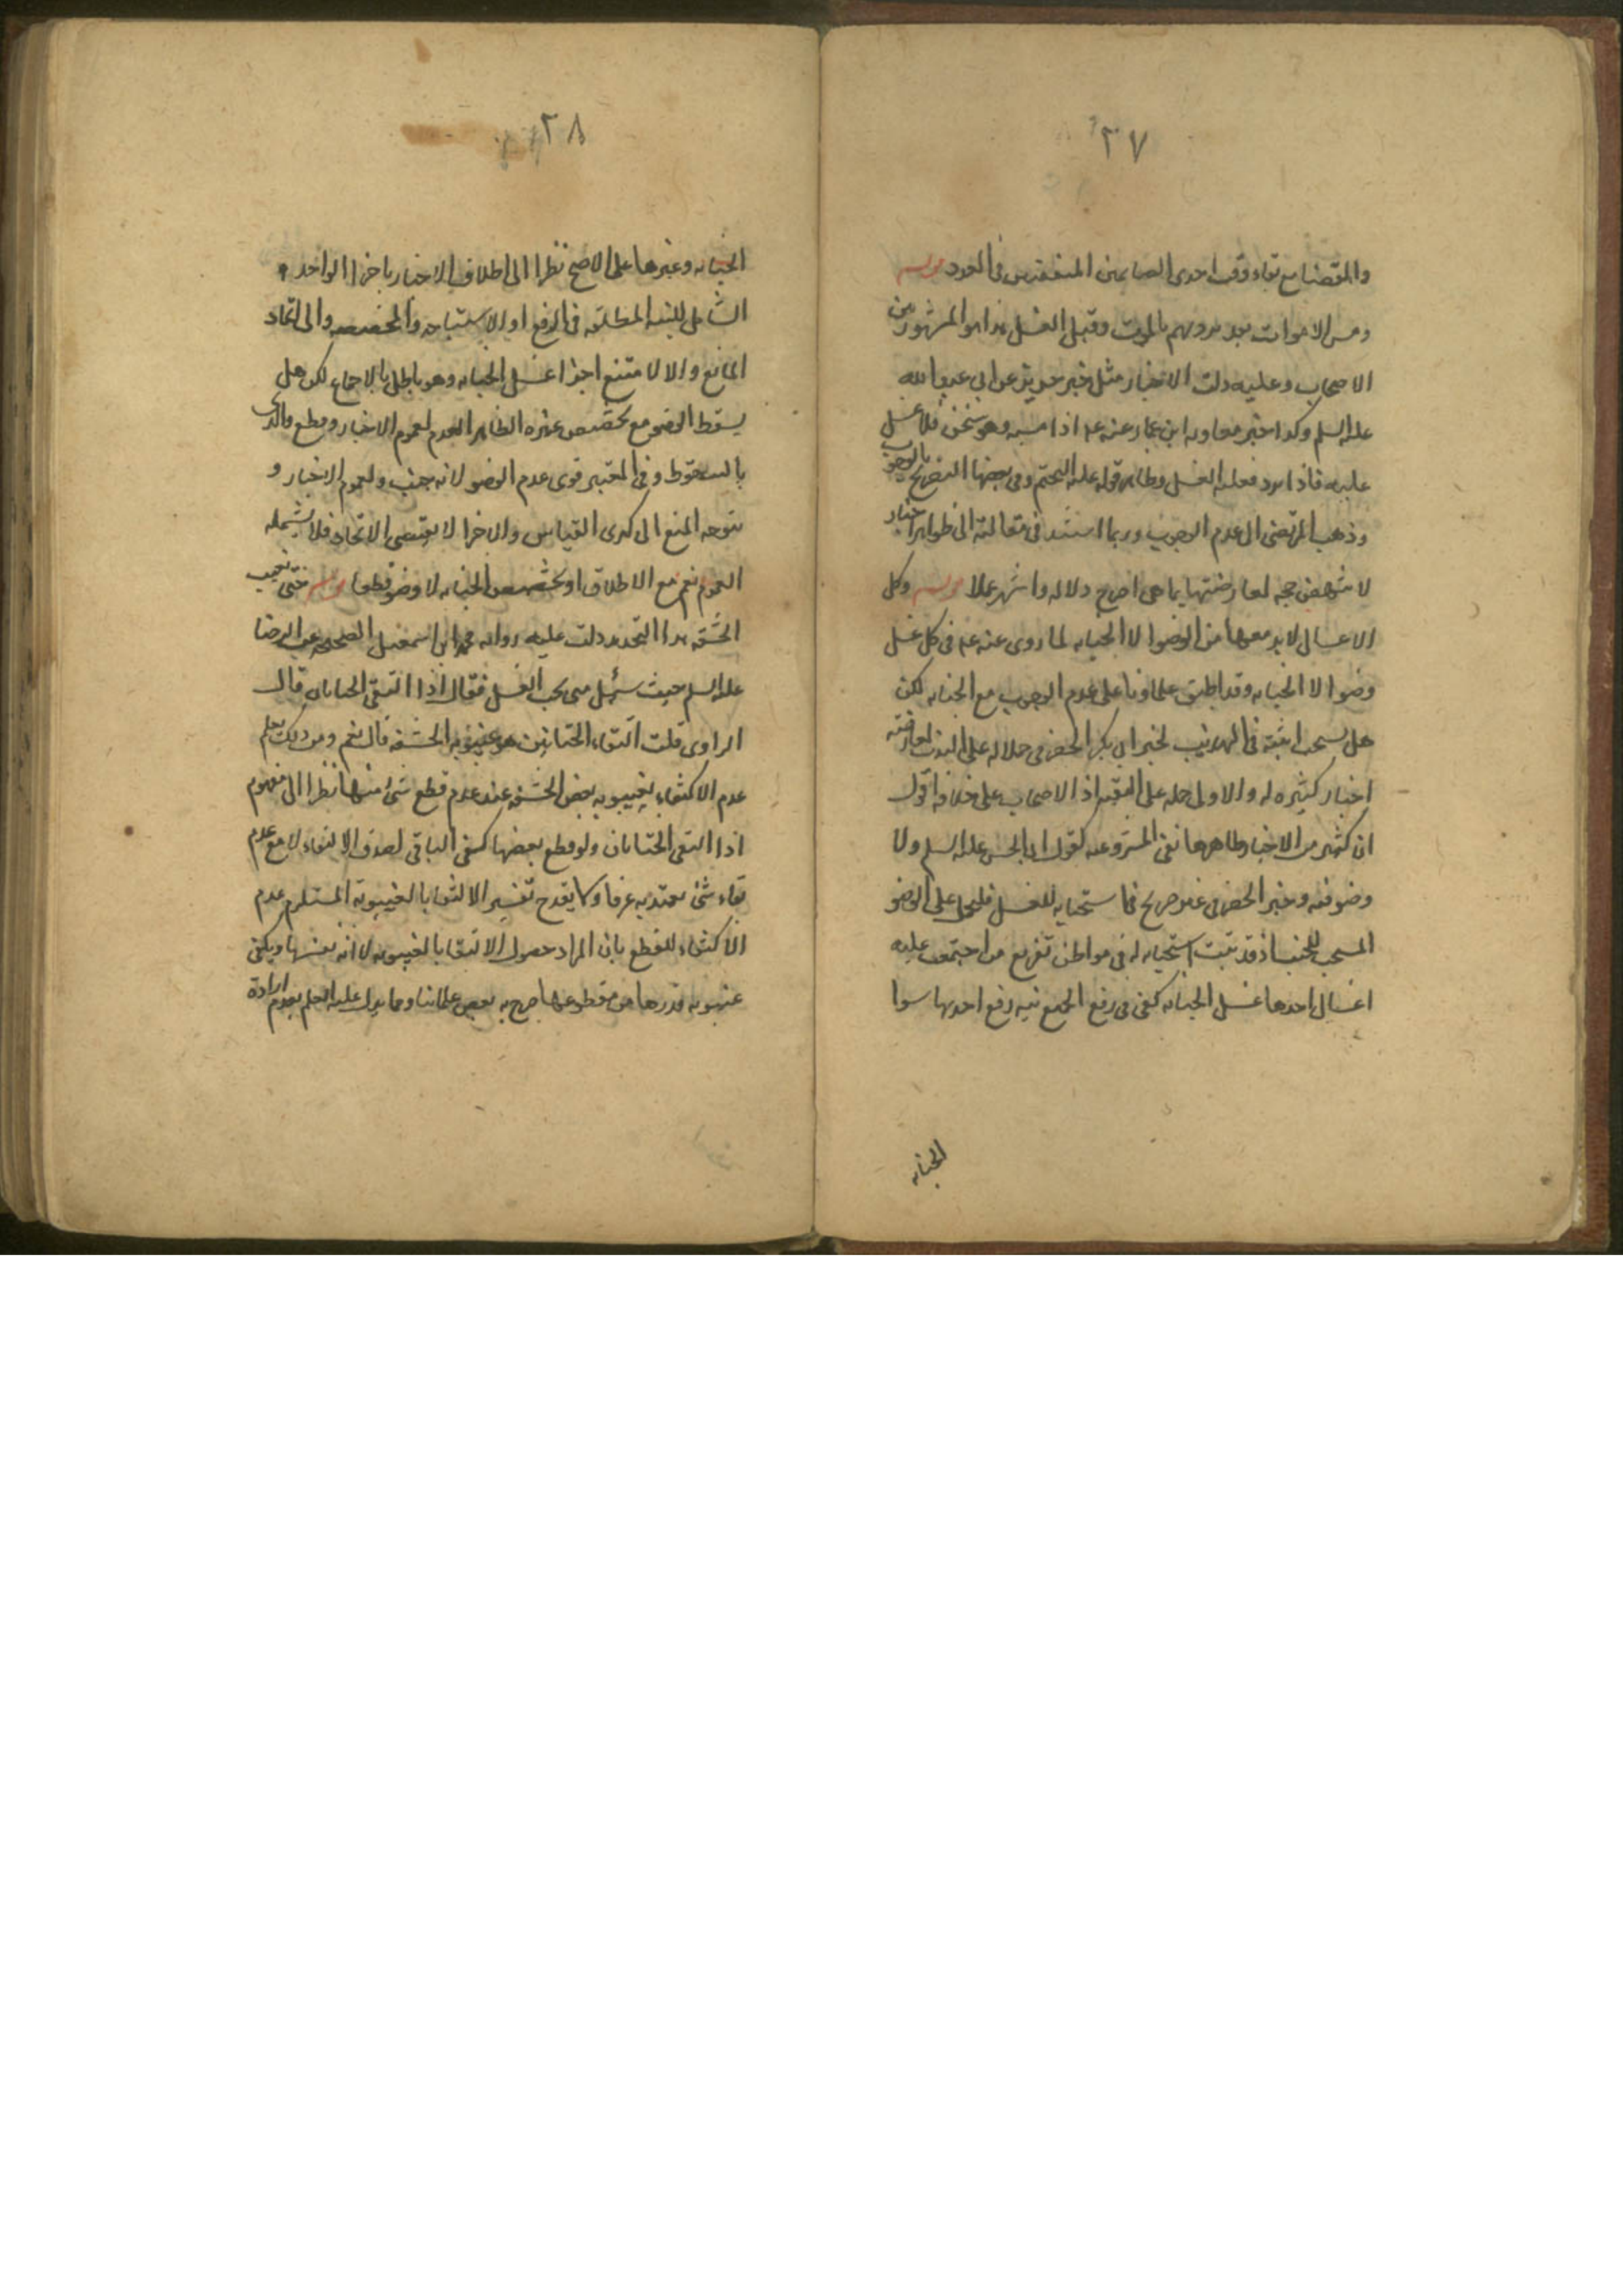 ٢٧
والمقضا مع بقاء وقت احدى الصايمين المتفقتين فى العدد قوله
ومس الاموات بعد بردهم بالموت وقبل الغسل هذا هو المشهور بين
الاصحاب وعليه دلت الاخبار مثل خبر حريز عن ابى عبد الله
عليه السلم وكذا خبر معاويه ابن عمار عنه عم اذا مسه وهو سخن فلا غسل
عليه فاذا برد فعليه الغسل وظاهر قوله عليه التحتم وفى بعضها التصريح بالوجوب
وذهب المرتضى الى عدم الوجوب وربما استند فى مقالته الى ظواهر اخبار
لا تنهض حجه لمعارضتها بما هى اصرح دلاله واشهر عملا قوله وكل
الاغسال لابد معها من الوضو الا الجنابه لما روى عنه عم فى كل غسل
وضو الا الجنابه وقد اطبق علماونا على عدم الوجوب مع الجنابه لكن
هل يستحب اثبته فى التهذيب لخبر ابى بكر الحضرمى حملا له على الندب لمعارضته
اخبار كثيره له والاولى حمله على التقيه اذ الاصحاب على خلافه اقول
ان كثير من الاخبار ظاهرها نفى المشروعيه كقول ابى الحسن عليه السلم ولا
وضو فيه وخبر الحضرمى غير صريح فى استحبابه للغسل فليحمل على الوضو
المستحب للجنب اذ قد ثبت استحبابه له فى مواطن تفريع من اجتمعت عليه
اغسال احدها غسل الجنابه كفى فى رفع الجميع نيه رفع احديها سوا
الجنابه
٢٨
الجنابه وغيرها على الاصح نظرا الى اطلاق الاخبار باجزا الواحد
الشامل للنيه المطلقه فى الرفع او الاستباحه والمخصصه والى اتحاد
المانع والا لامتنع اجزا غسل الجنابه وهو باطل بالاجماع لكن هل
يسقط الوضو مع تخصيص غيره الظاهر العدم لعموم الاخبار وقطع فى الذكرى
بالسقوط وفى المعتبر قوى عدم الوضو لانه جنب ولعموم الاخبار و
يتوجه المنع الى كبرى القياس والاجزا لا يقتضى الاتحاد فلا يشمله
العموم نعم مع الاطلاق او تخصيص الجنابه لا وضو قطعا قوله حتى تغيب
الحشفه هذا التحديد دلت عليه روايه محمد ابن اسمعيل الصحيحه عن الرضا
عليه السلم حيث سئل متى يجب الغسل فقال اذا التقى الختانان قال
الراوى قلت التقاء الختانين هو غيبوبه الحشفه قال نعم ومن ذلك يعلم
عدم الاكتفاء بغيبوبه بعض الحشفه عند عدم قطع شئ منها نظرا الى مفهوم
اذا التقى الختانان ولو قطع بعضها كفى الباقى لصدق الالتقاء لا مع عدم
بقاء شئ يعتد به عرفا ولا يقدح تفسير الالتقا بالغيبوبة المستلزم عدم
الاكتفاء للقطع بان المراد حصول الالتقا بالغيبوبه لا انه نفسها ويكفى
غيبوبه قدرها من مقطوعها صرح به بعض علمائنا ومما يدل عليه العلم بعدم ارادة